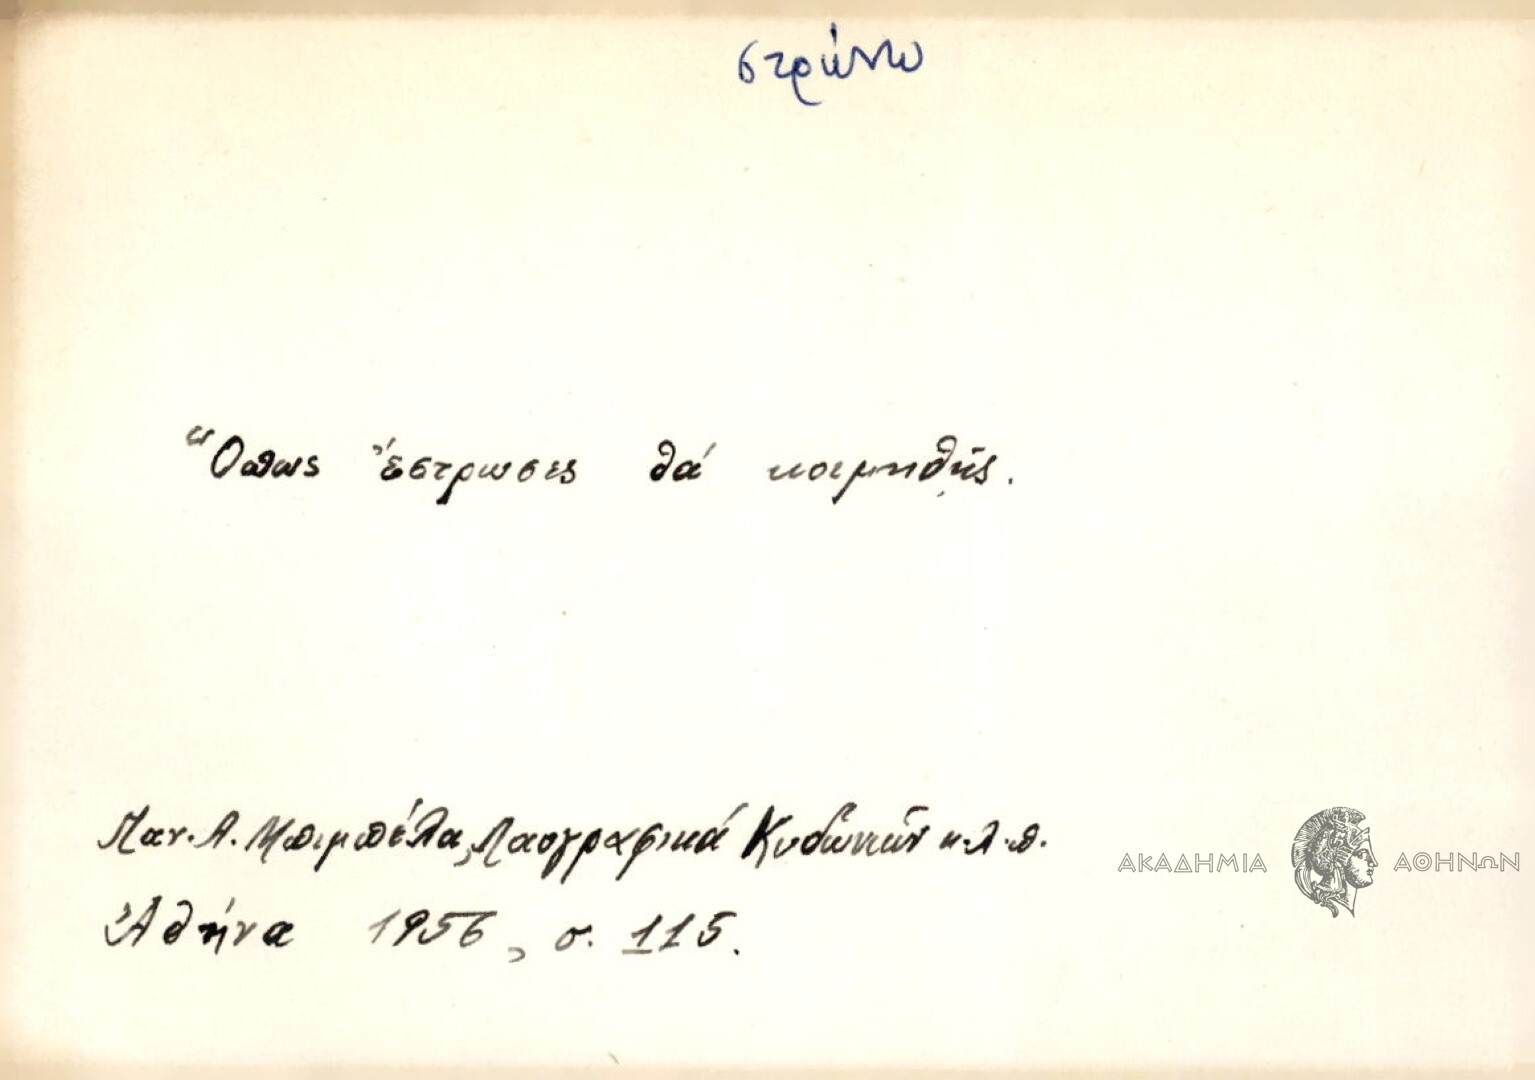 στρώνω
Ὅπως ἔστρωσες θά κοιμηθῇς.
Παν. Λ. Μπιμπέλα, Λαογραφικά Κυδωνιῶν κ.λ.π.
Ἀθήνα 1956, σ. 115.
ΑΚΑΔΗΜΙΑ ΑΘΗΝΩΝ